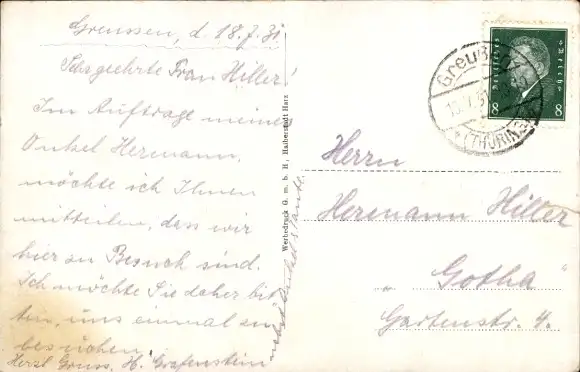 Greussen, d. 18.7.31
Sehrgeehrte Frau Hiller!
Im Auftrage meines
Onkel Hermann,
möchte ich Ihnen
mitteilen, dass wir
hier zu Besuch sind.
Ich möchte Sie daher bit-
ten, uns einmal zu
besuchen.
Herzl Gruss, H. Grafenstein
Werbedruck G. m. b. H., Halberstadt Harz
Greußen
(THÜRING
Deutsches Reich
8 8
Herrn
Hermann Hiller
„ Gotha “
Gartenstr. 4.